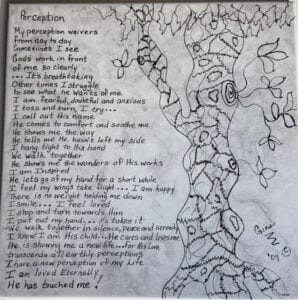 Perception
My perception waivers
from day to day
Sometimes I see
Gods work in front
of me so clearly
... It's breathtaking
Other times I struggle
to see what he wants of me
I am fearful, doubtful and anxious
I toss and turn, I cry...
I call out his name
He comes to comfort and soothe me
He shows me the way
He tells me He hasn't left my side
I hang tight to His hand
We walk together
He shows me the wonders of His works
I am Inspired
He lets go of my hand for a short while
I feel my wings take flight... I am happy
There is no weight holding me down
I smile... I feel loved
I stop and turn towards Him
I put out my hand... He takes it
We walk together in silence, peace and serenity
I know I am His child... He cares and loves me
He is showing me a new life... for His Love
transcends all earthly perceptions
I have a new perception of my life
I am loved Eternally
He has touched me!
'09